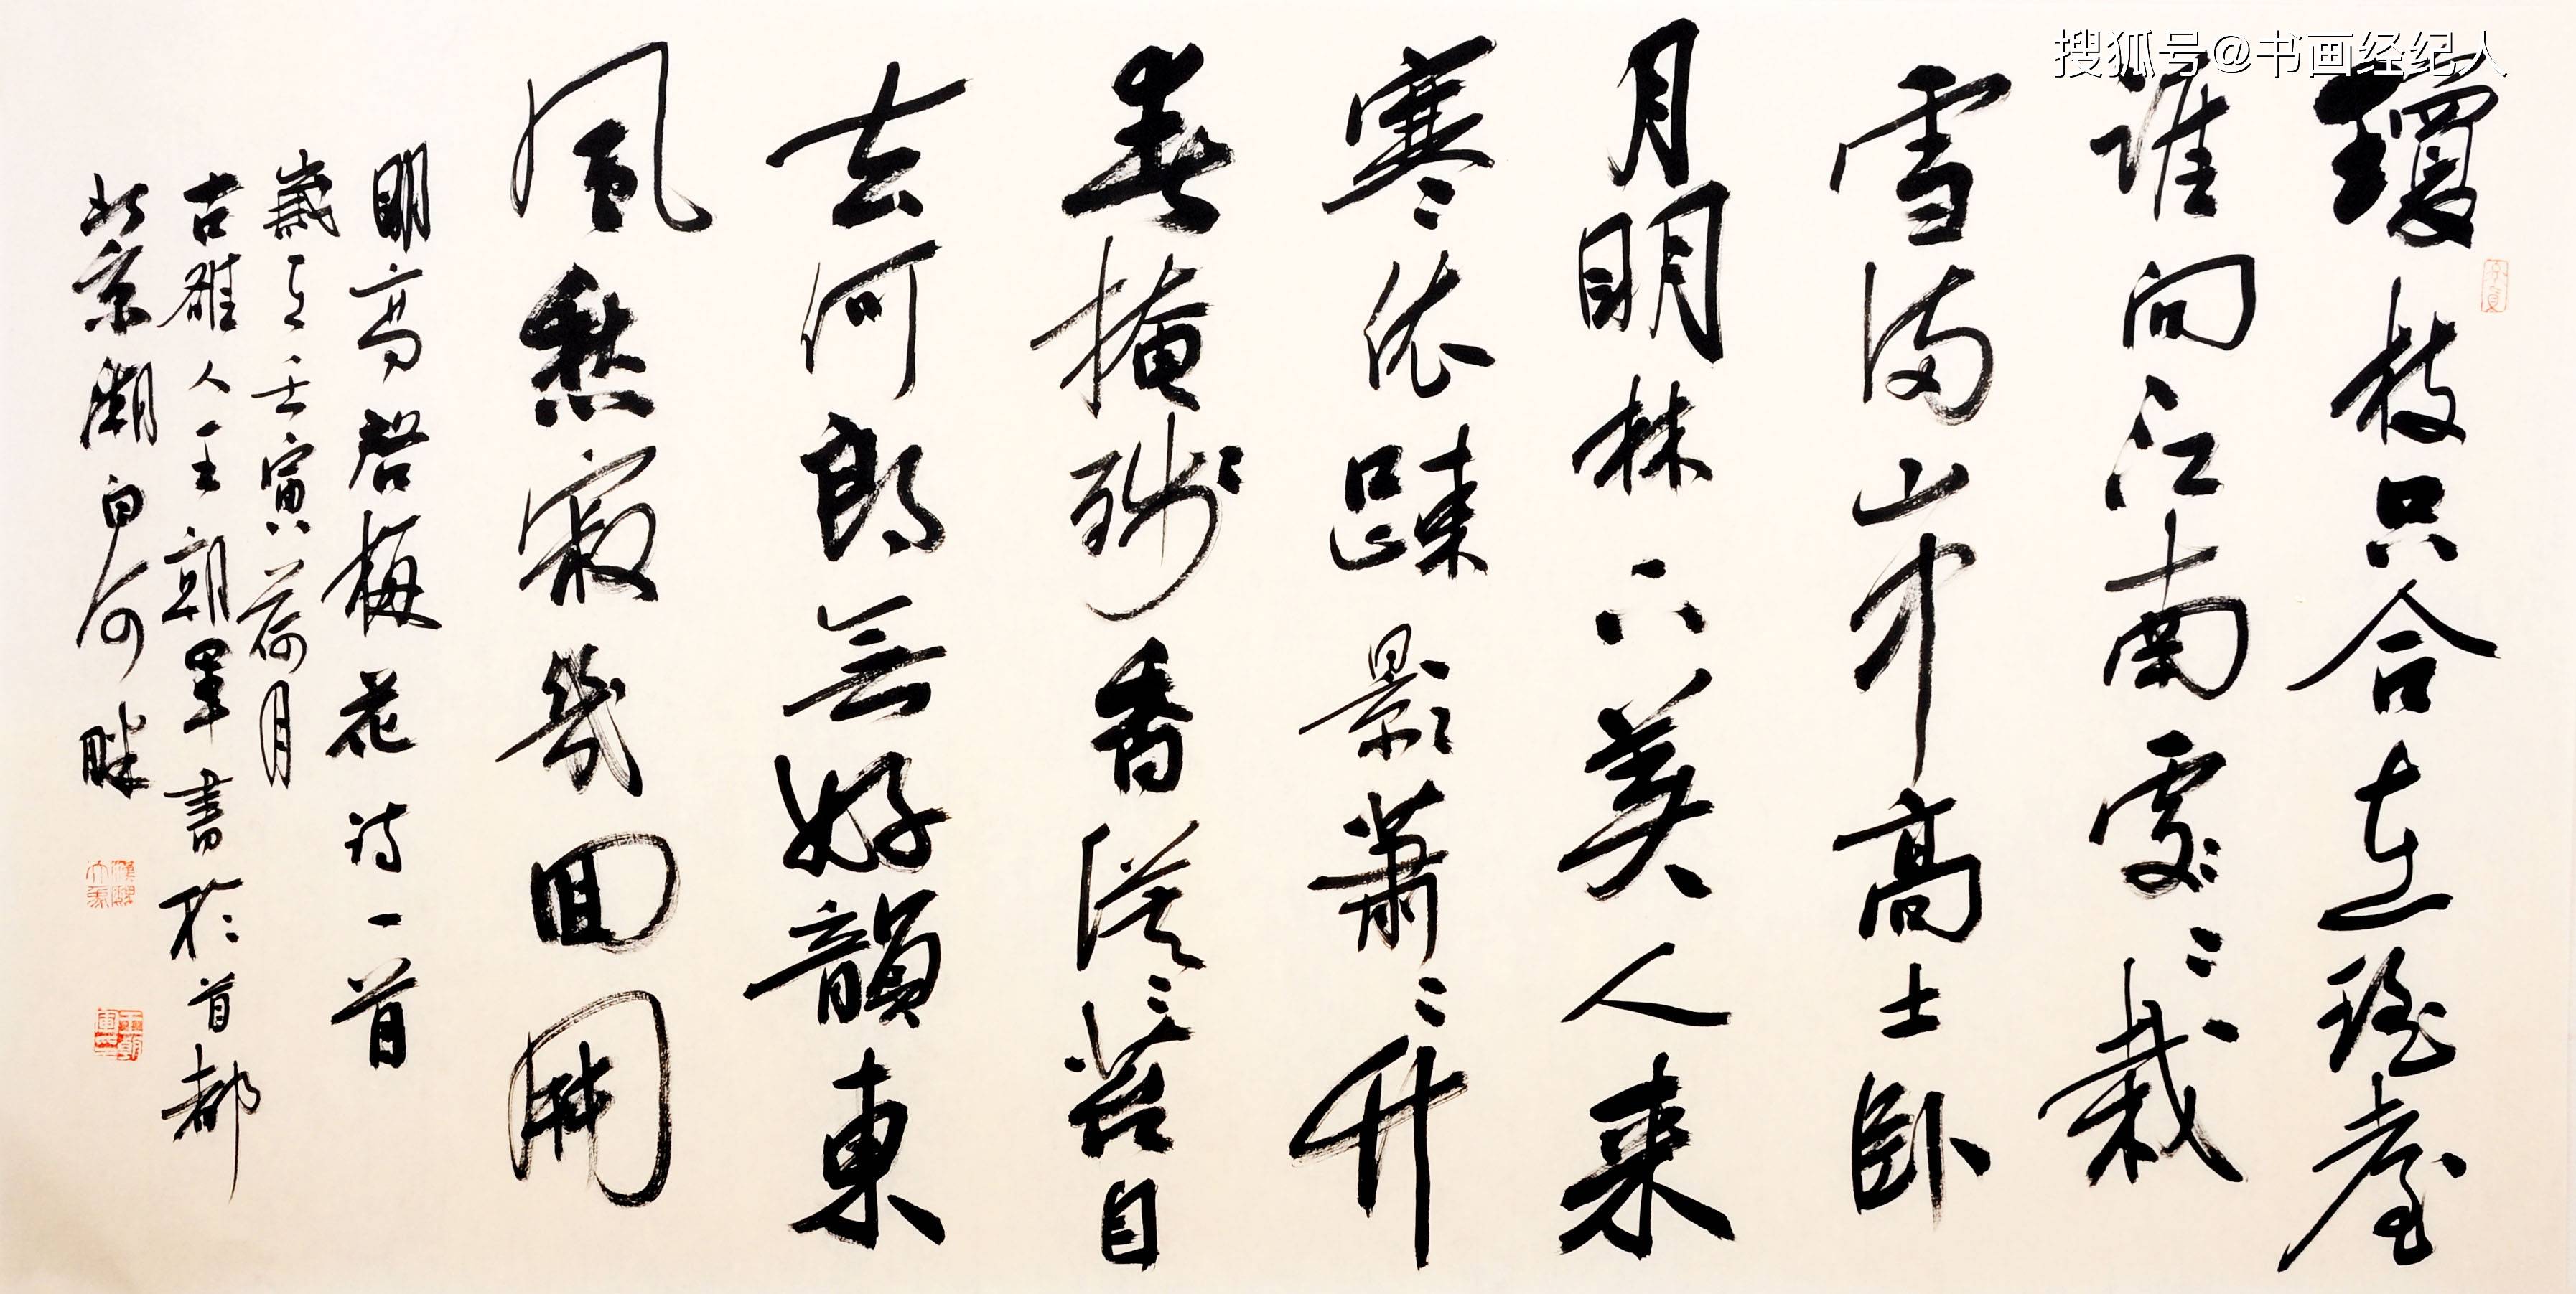 搜狐号@书画经纪人
瓊枝只合在瑶臺
誰向江南處〻栽
雪満山中高士卧
月明林下美人来
寒依踈影蕭〻竹
春掩残香漠〻苔自
去何郎無好韻東
風愁寂幾回開
明高启梅花诗一首
歲在壬寅荷月
古雒人王朝軍書於首都
北京潮白河畔